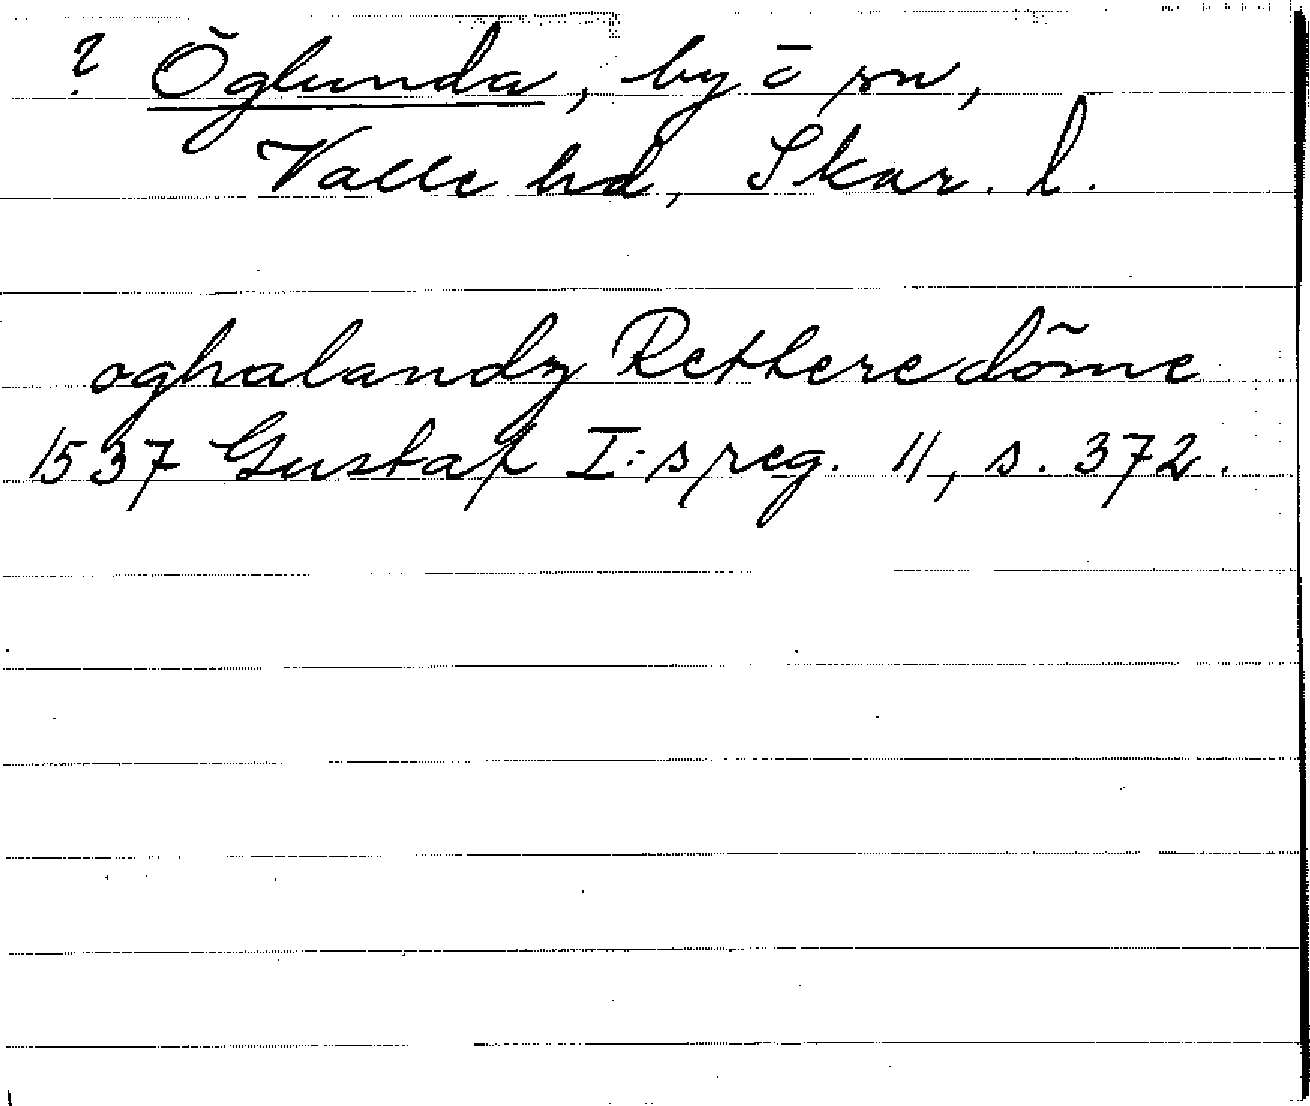 ? Öglunda, by ö sn,
Valle hd, Skar. l.
oghalandz Rettheredöme
1537 Gustaf I:s reg. 11, s. 372.